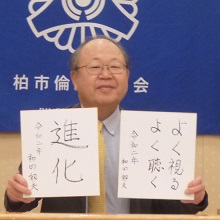 柏市倫 会
進化
令和二年
よく視る
よく聴く
令和二年